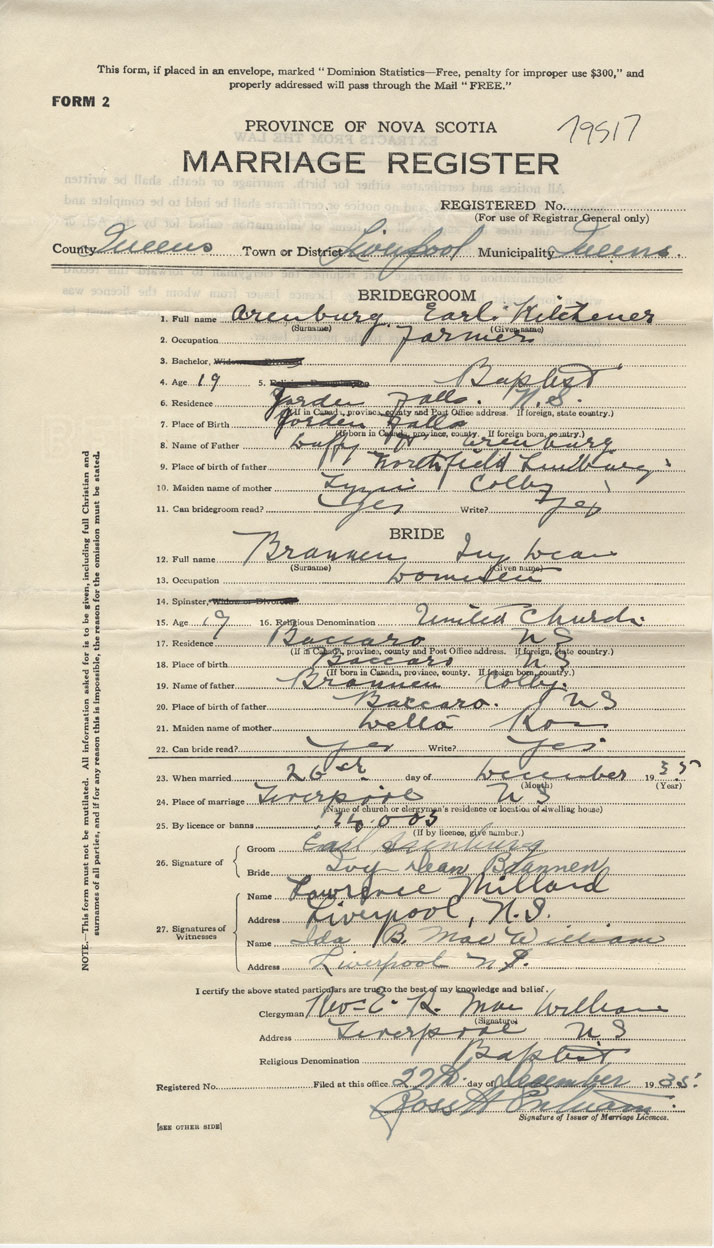 This form, if placed in an envelope, marked "Dominion Statistics—Free, penalty for improper use $300," and
properly addressed will pass through the Mail "FREE."
FORM 2
PROVINCE OF NOVA SCOTIA
79517
MARRIAGE REGISTER
REGISTERED No.
(For use of Registrar General only)
County Queens Town or District Liverpool Municipality Queens
BRIDEGROOM
1. Full name Arenburg Earl Kitchener
(Surname) (Given name)
2. Occupation farmer
3. Bachelor, Widower or Divorced
4. Age 19 5. Religious Denomination Baptist
6. Residence Jorden Falls. N.S.
(If in Canada, province, county and Post Office address. If foreign, state country.)
7. Place of Birth Jorden Falls
(If born in Canada, province, county. If foreign born, country.)
8. Name of Father Arenburg
9. Place of birth of father Northfield
10. Maiden name of mother Colby
11. Can bridegroom read? Yes Write? Yes
BRIDE
12. Full name Brannen Ivy Dean
(Surname) (Given name)
13. Occupation Domestic
14. Spinster, Widow or Divorced
15. Age 19 16. Religious Denomination United Church
17. Residence Baccaro N S
(If in Canada, province, county and Post Office address. If foreign, state country.)
18. Place of birth Baccaro N S
(If born in Canada, province, county. If foreign born, country.)
19. Name of father Brannen Colby
20. Place of birth of father Baccaro. N S
21. Maiden name of mother Ross
22. Can bride read? Yes Write? Yes
23. When married 26th day of December 19 35
(Month) (Year)
24. Place of marriage Liverpool N S
(Name of church or clergyman's residence or location of dwelling house)
25. By licence or banns
(If by licence, give number.)
26. Signature of Groom Earl Arenburg
Bride Ivy Dean Brannen
27. Signatures of Witnesses Name Lawrence Millard
Address Liverpool, N.S.
Name Ida B. MacWilliam
Address Liverpool N.S.
I certify the above stated particulars are true to the best of my knowledge and belief.
Clergyman Rev E. R. MacWilliam
(Signature)
Address Liverpool N S
Religious Denomination Baptist
Registered No. Filed at this office 27th day of December 19 35
Signature of Issuer of Marriage Licences.
[SEE OTHER SIDE]
NOTE.—This form must not be mutilated. All information asked for is to be given, including full Christian and
surnames of all parties, and if for any reason this is impossible, the reason for the omission must be stated.